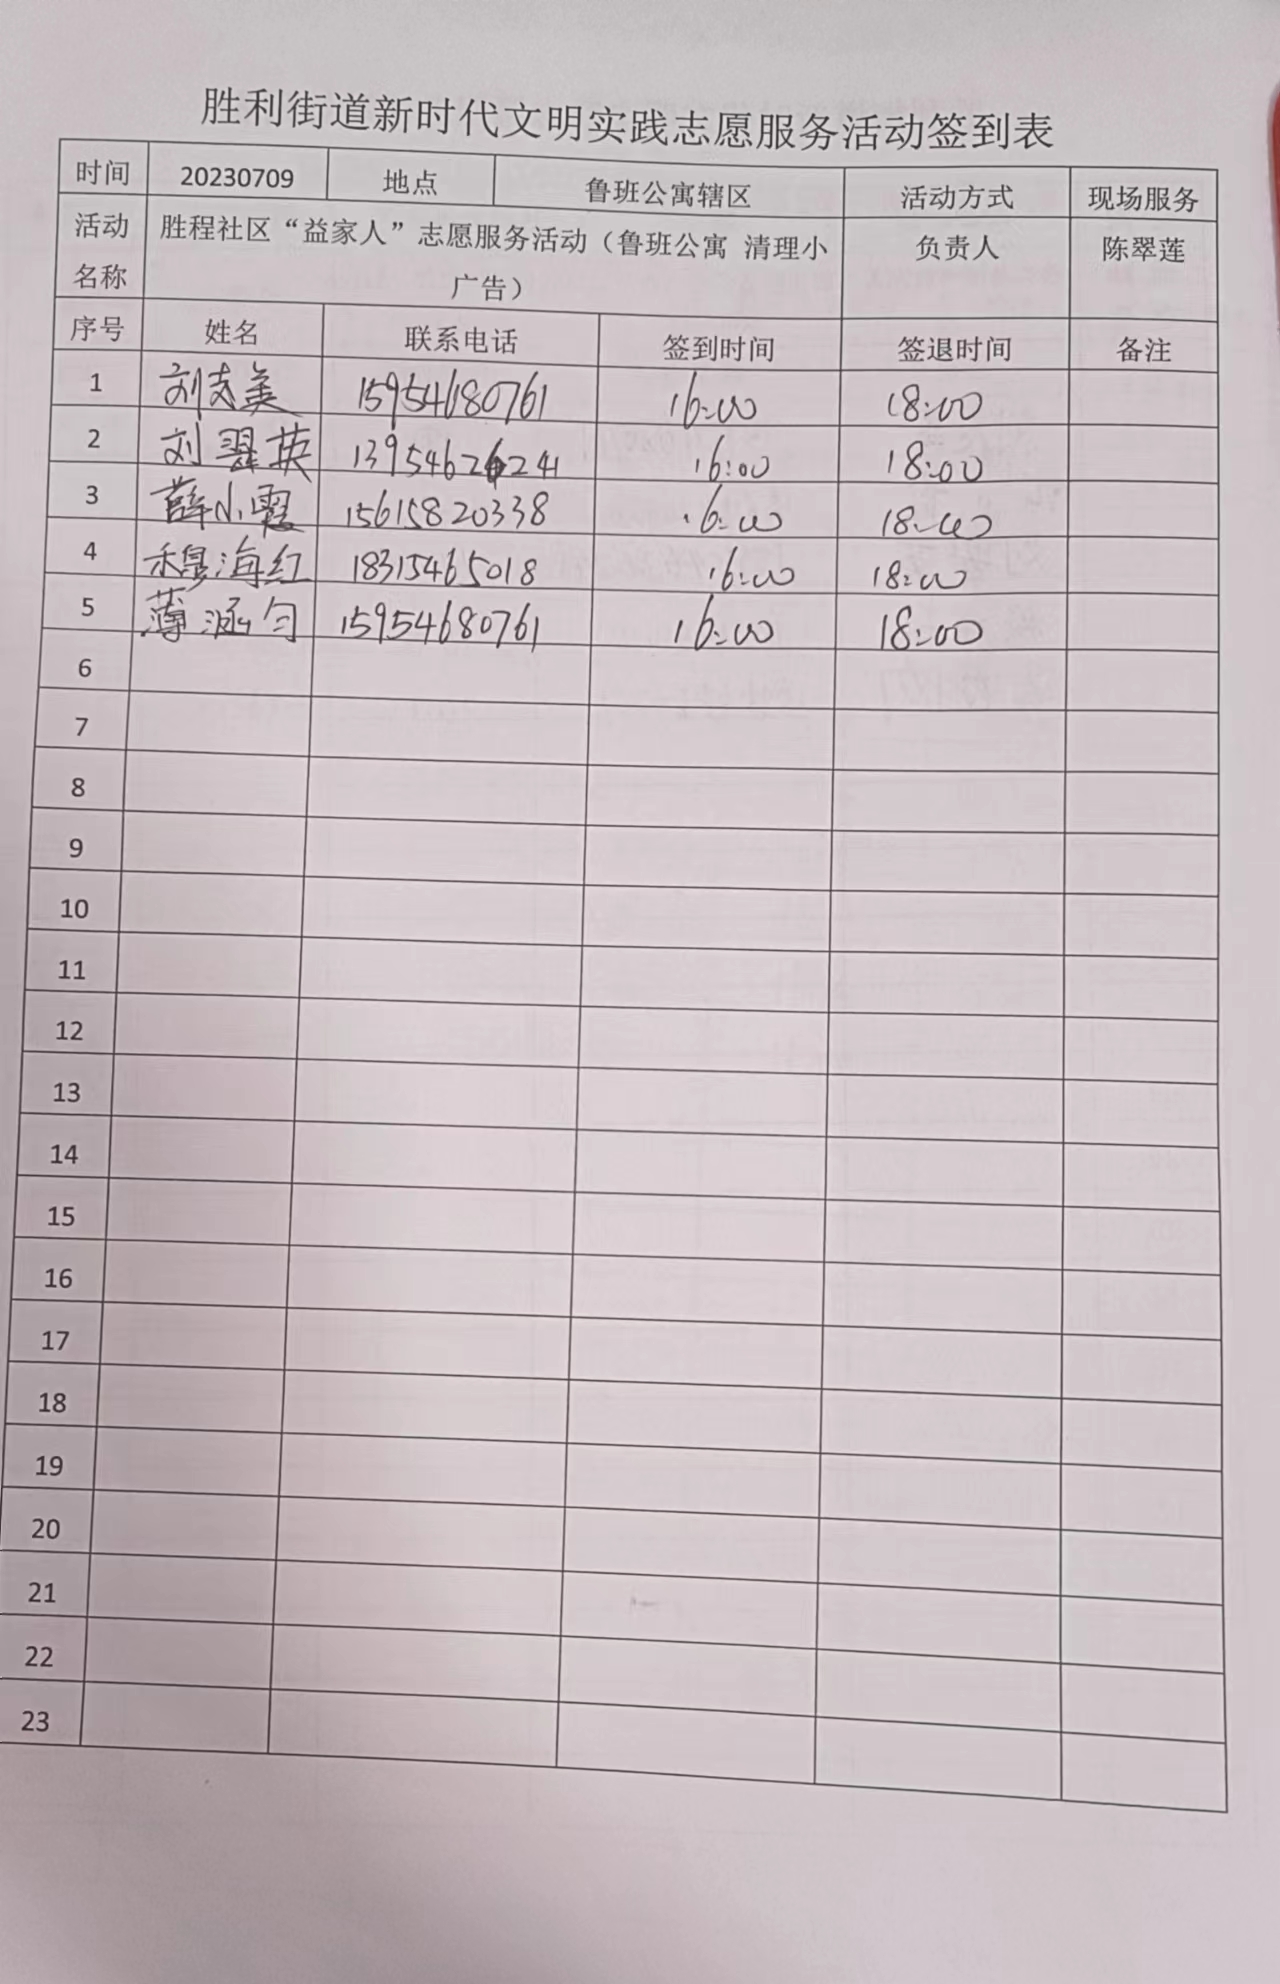 胜利街道新时代文明实践志愿服务活动签到表
时间 20230709 地点 鲁班公寓辖区 活动方式 现场服务
活动名称 胜程社区“益家人”志愿服务活动（鲁班公寓 清理小广告） 负责人 陈翠莲
序号 姓名 联系电话 签到时间 签退时间 备注
1 刘志美 15954680761 16:00 18:00
2 刘翠英 13954626241 16:00 18:00
3 薛小霞 15615820338 16:00 18:00
4 穆海红 18315465018 16:00 18:00
5 薄涵匀 15954680761 16:00 18:00
6
7
8
9
10
11
12
13
14
15
16
17
18
19
20
21
22
23